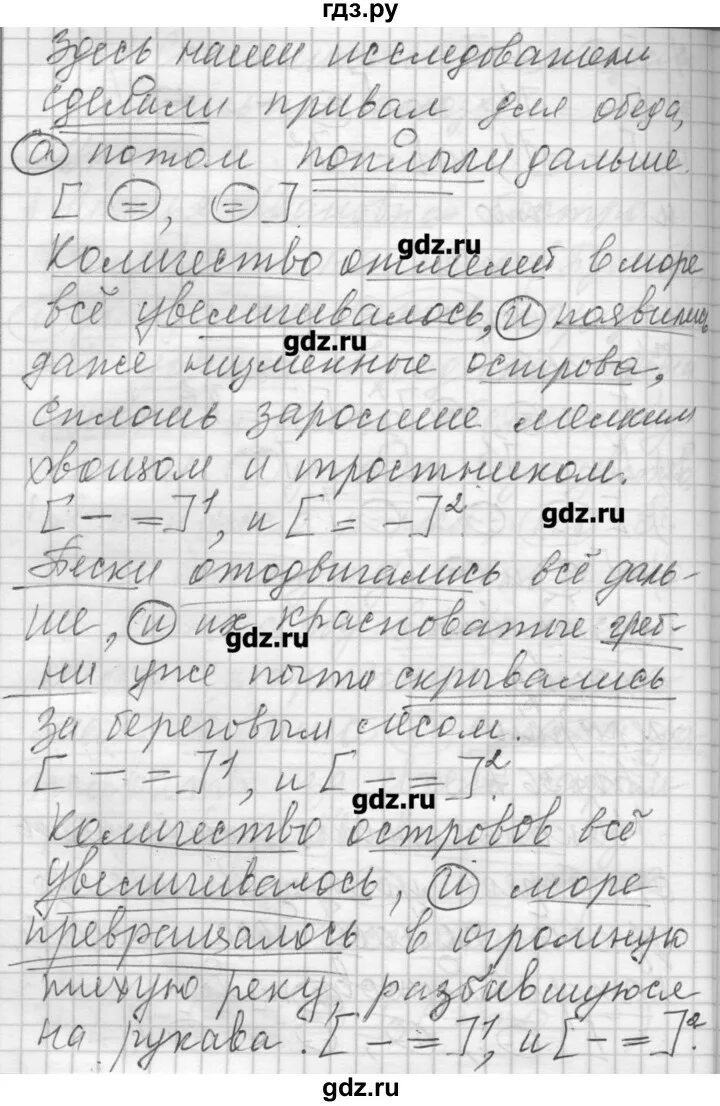 гдз.ру
Здесь наши исследователи
сделали привал для обеда,
а потом поплыли дальше.
[ =, = ].
gdz.ru
Количество отмелей в море
всё увеличивалось, и появились
gdz.ru
даже низменные острова,
сплошь заросшие мелким
хвощом и тростником.
[ – = ]1, и [ = – ]2.
gdz.ru
Пески отодвигались всё даль-
ше, и их красноватые греб-
gdz.ru
ни уже почти скрывались
за береговым лесом.
[ – = ]1, и [ – = ]2.
gdz.ru
Количество островов всё
увеличивалось, и море
превращалось в огромную
тихую реку, разбившуюся
на рукава. [ – = ]1, и [ – = ]2.
gdz.ru